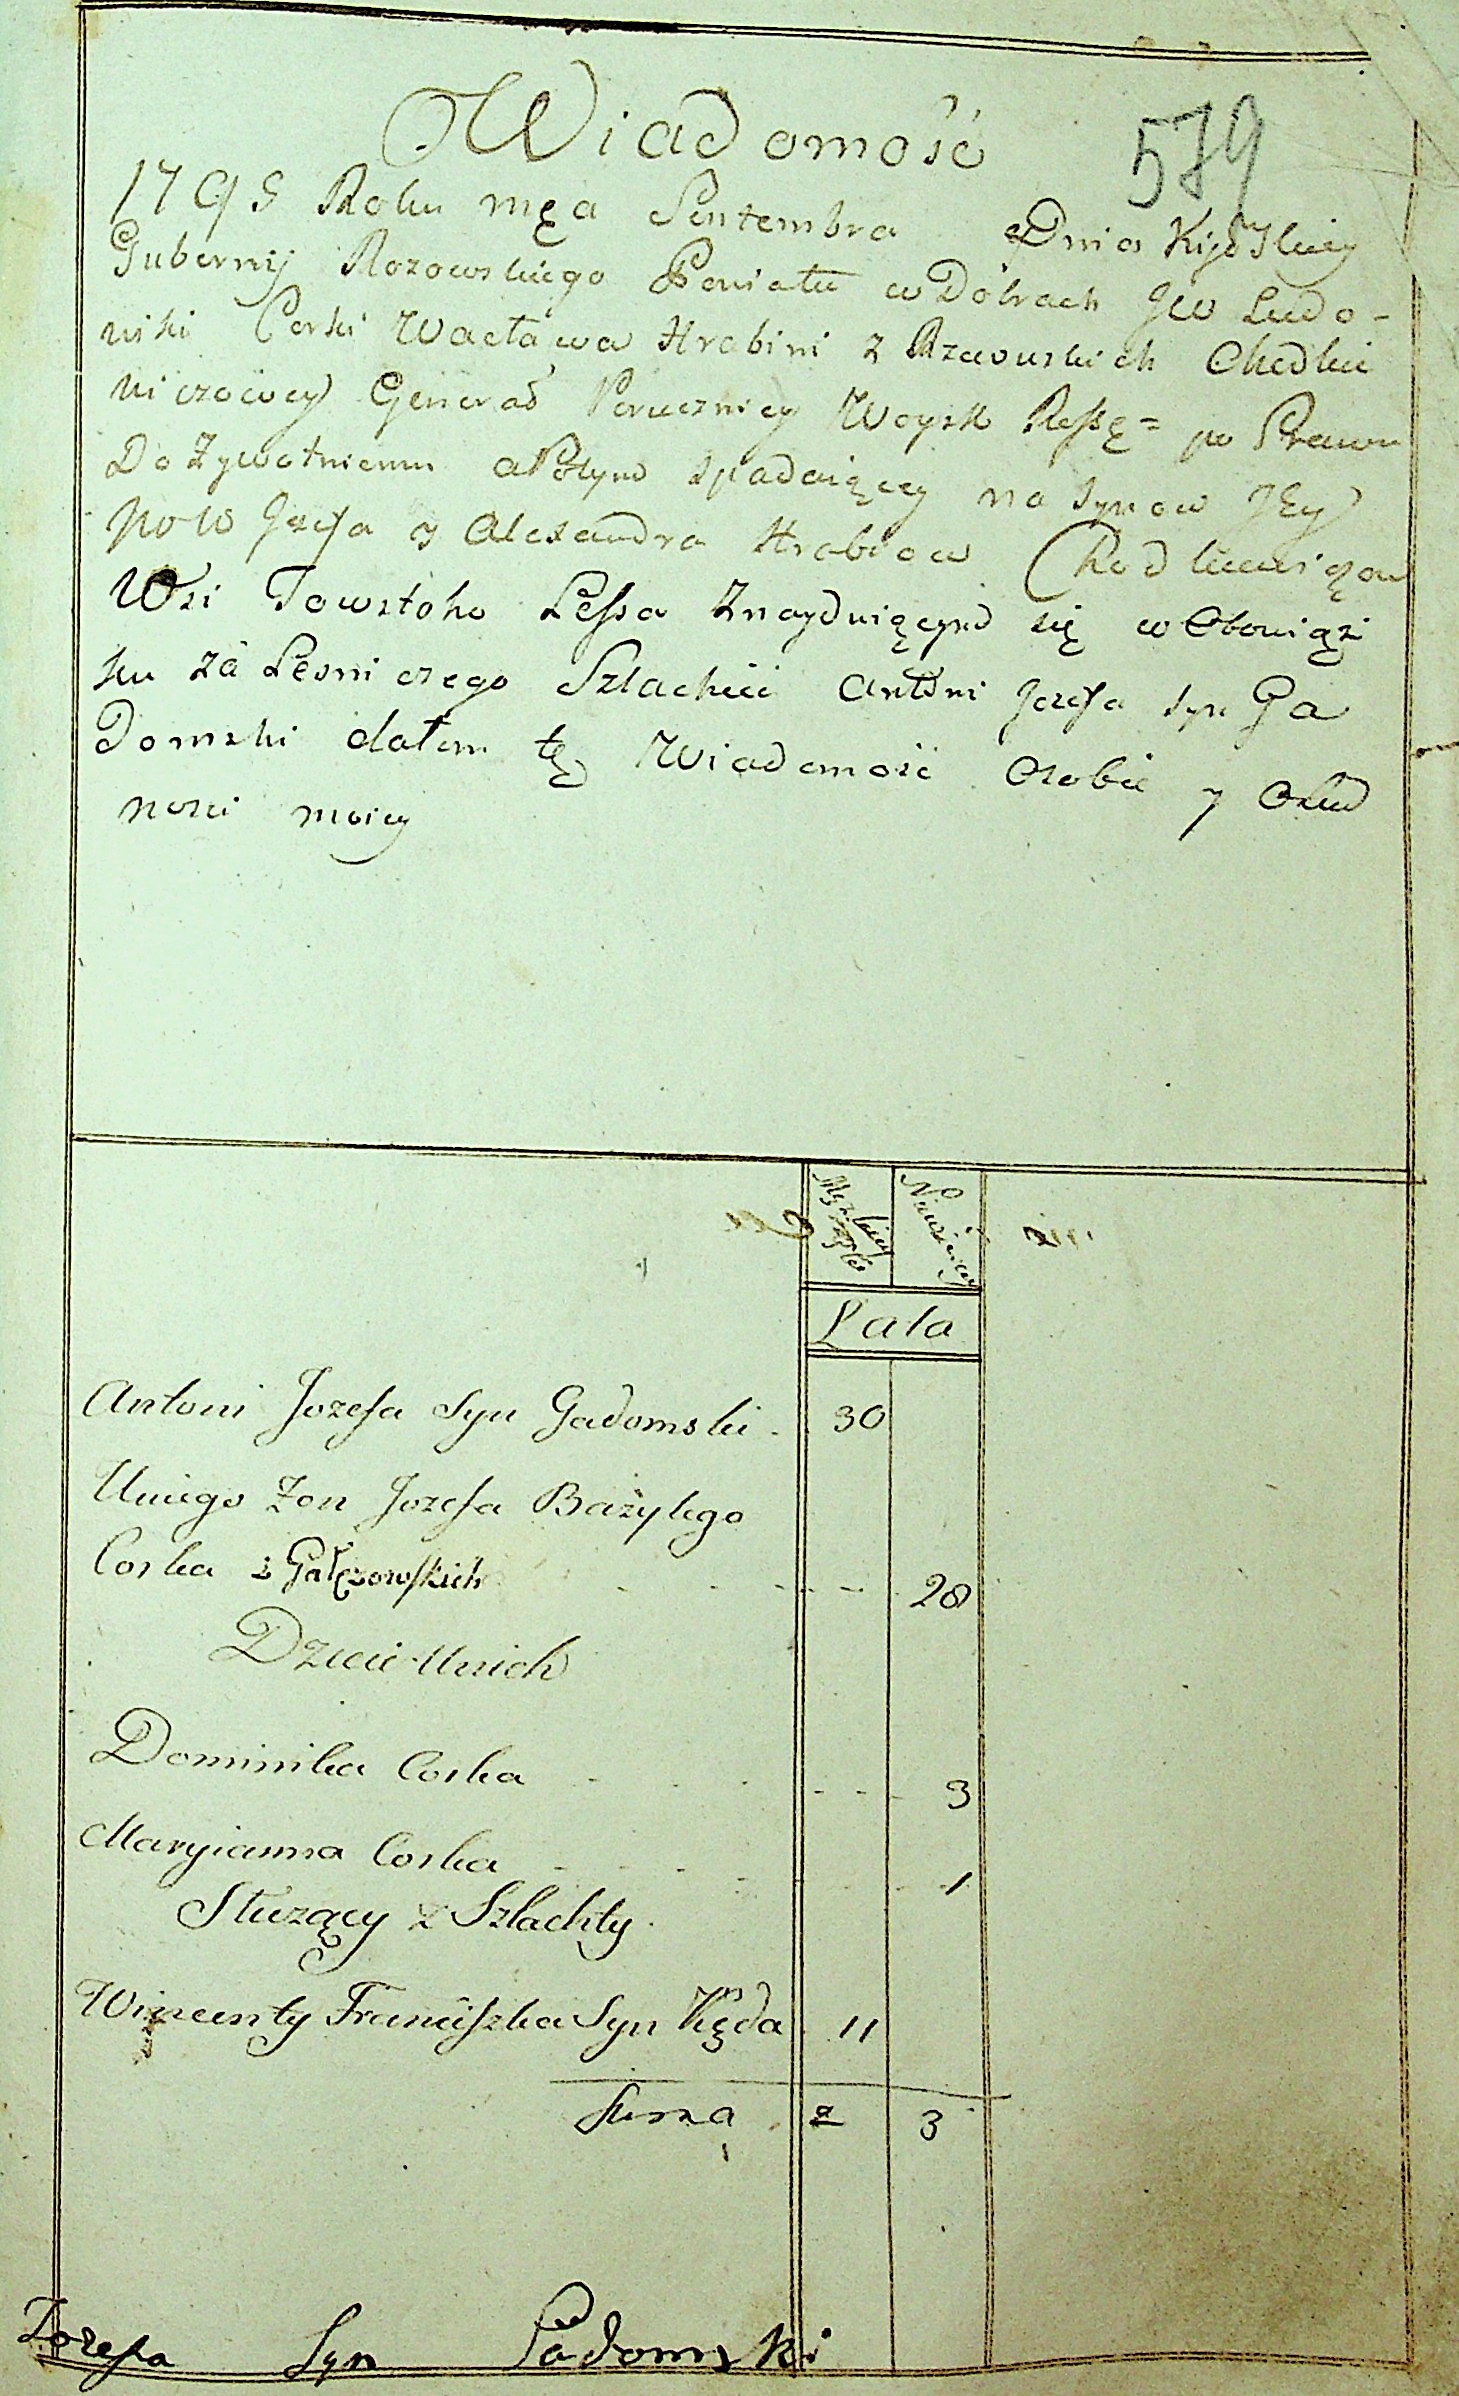 Wiadomość
579
1795 Roku męa Sentembra Dnia Kijowskiey
Gubernij Rozowskiego Powiatu w Dobrach JW Ludo-
wiki Corki Wacława Hrabini z Rzewuskich Chodkie
wiczowey Generał Porucznicy Woysk Ressę= po Prawu
Dożywotniemu a Potym spadaiącey na synow JEy
po W Jozefa y Alexandra Hrabiow Chodkiewiczow
Wsi Towstoho Lessa Znayduiącym się w Obowiąz
ku za Lesniczego Szlachcic Antoni Jozefa syn Ga
Domski dałem tę Wiadomość Osobie y Osad
nosci moiey
Męzkiey Niewiesciey
Lata
Antoni Jozefa Syn Gadomski 30
Uniego Żon Jozefa Bazylego
Corka z Gałęzowskich 28
Dzieci Unich
Dominika Corka 3
Maryianna Corka 1
Służący z Szlachty
Wincenty Franciszka Syn Kęda 11
Suma 2 3
Jozefa Syn Gadomski